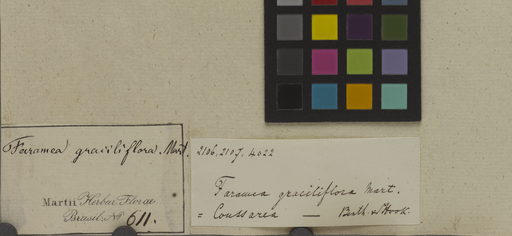 Faramea graciliflora. Mart.
Martii Herbar. Florae
Brasil. No 611.
2106. 2107. 4022
Faramea graciliflora Mart.
= Coussarea — Benth. & Hook.